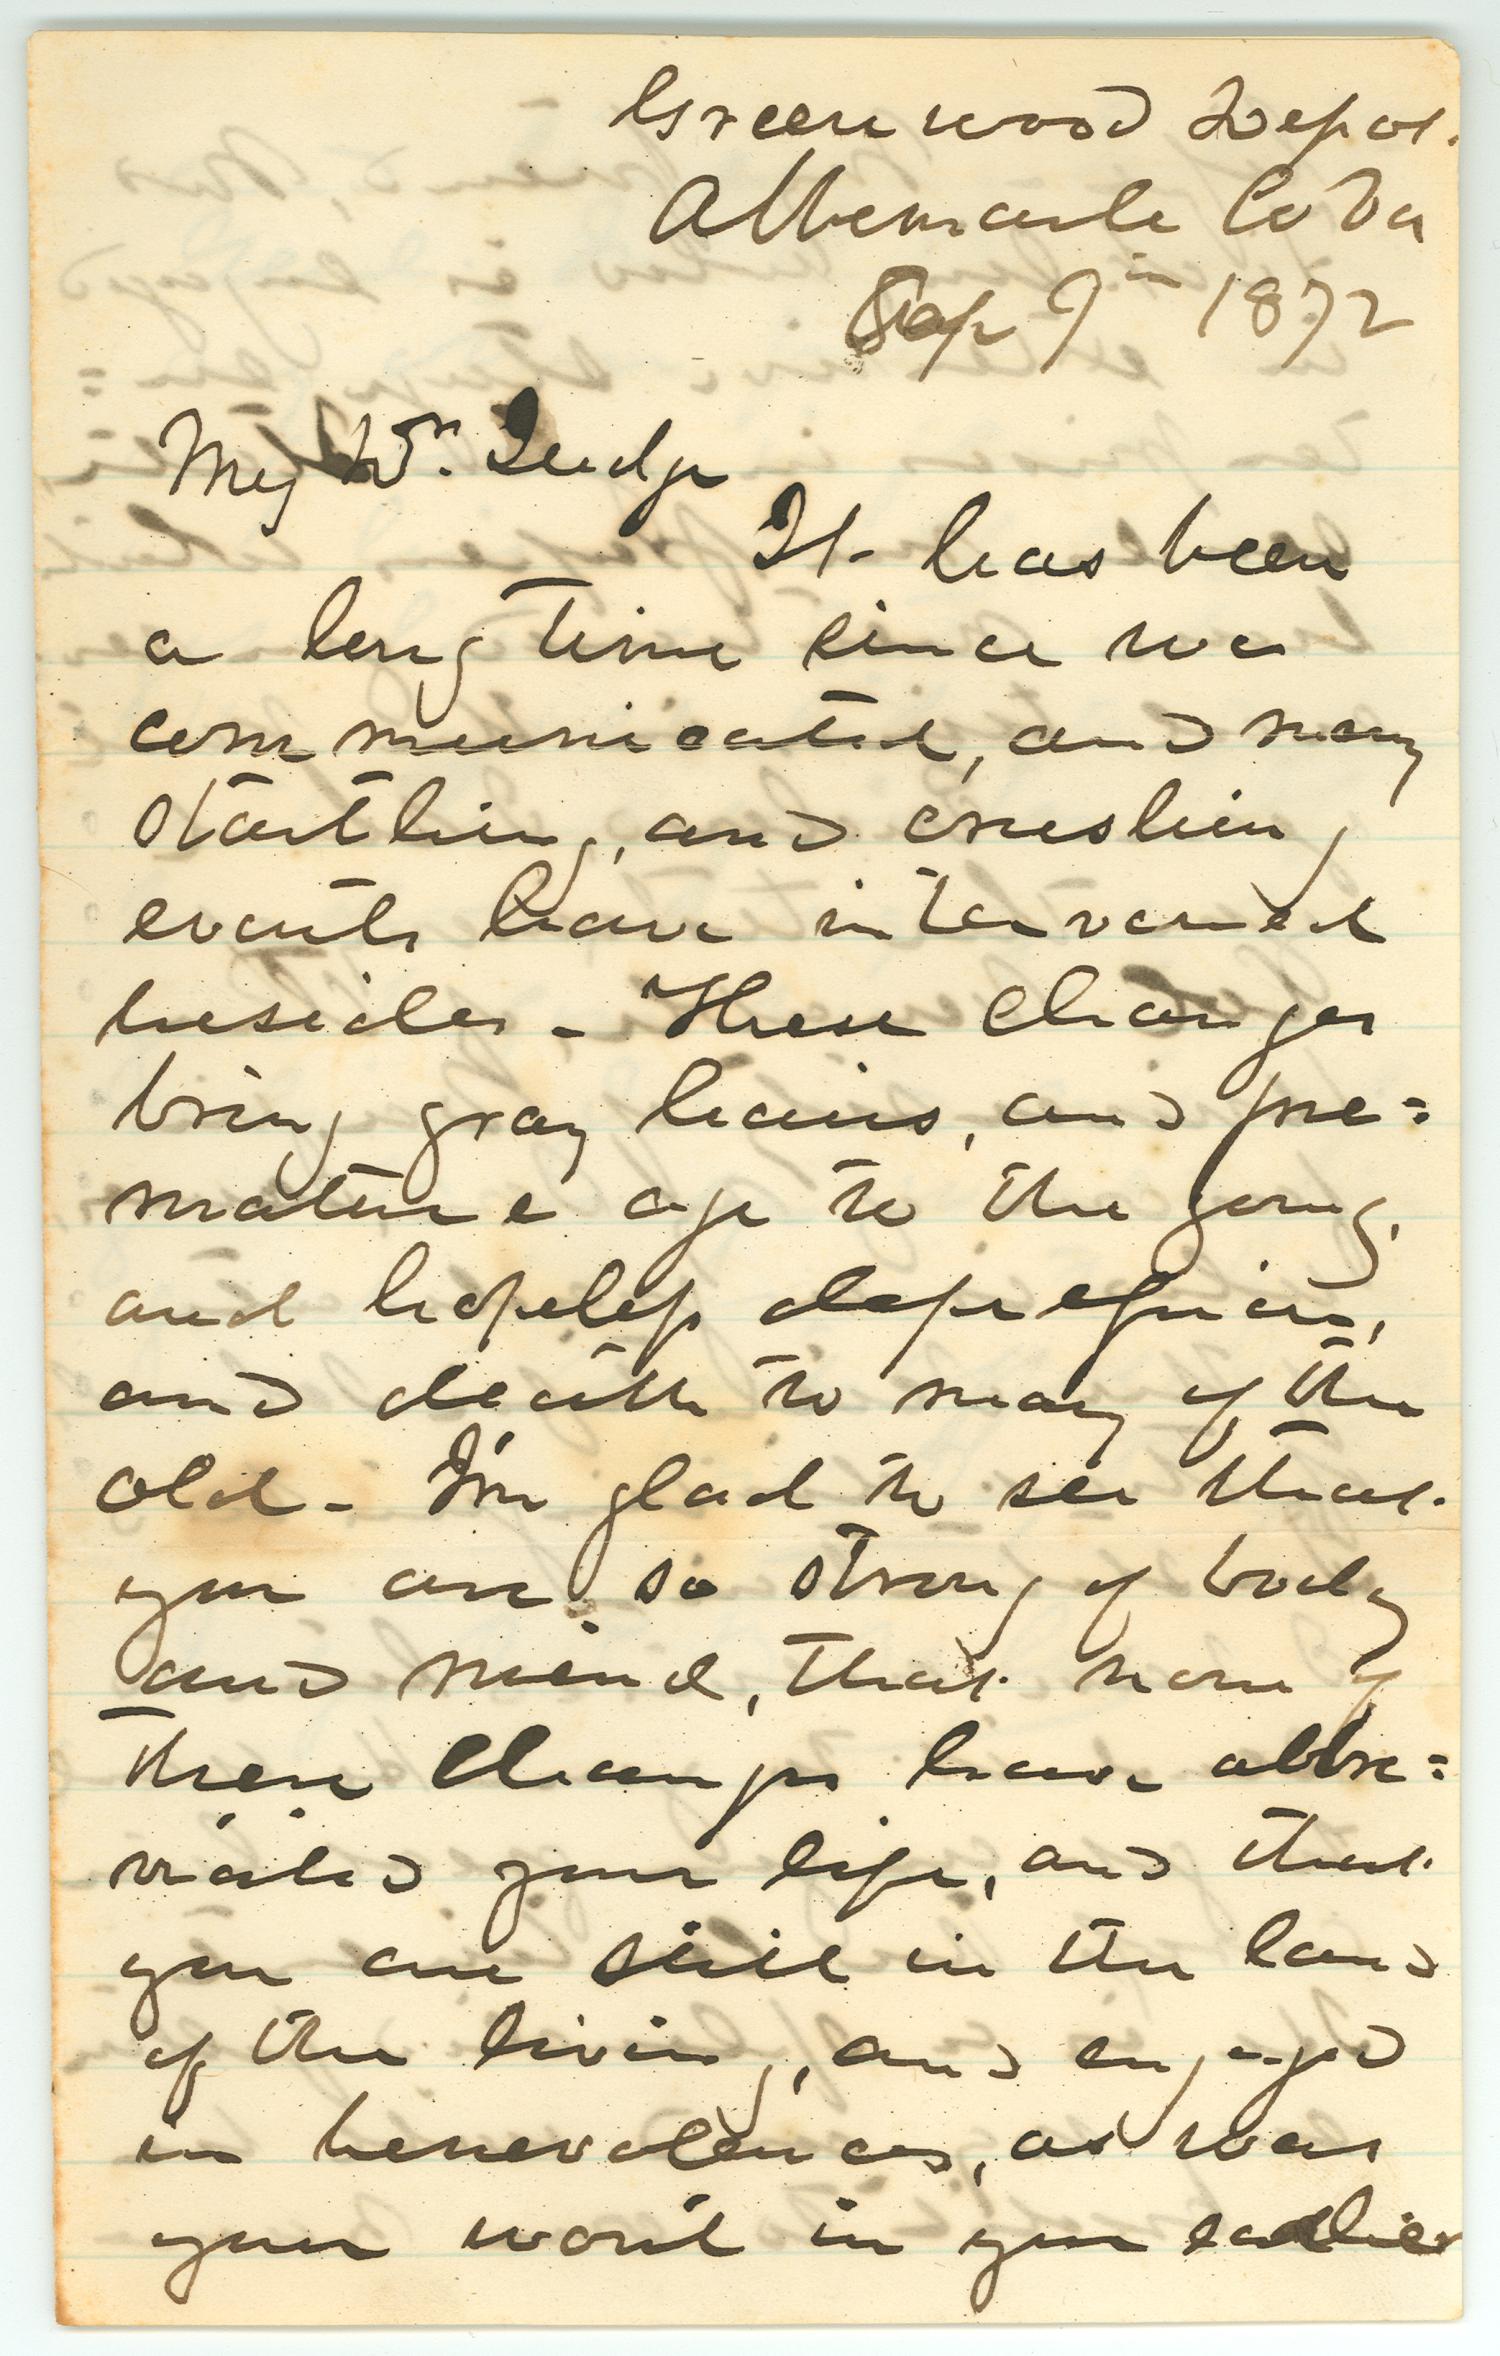 Greenwood Depot.
Albemarle Co Va
Sep 9th 1872
My Dr. Judge
It has been
a long time since we
communicated, and many
startling, and crushing
events have intervened
besides - These changes
bring gray hairs, and pre=
mature age to the young,
and hopeless depression,
and death to many of the
old - I'm glad to see that
you are so strong of body
and mind, that none of
these changes have abbre=
viated your life, and that
you are still in the land
of the living, and engaged
in benevolences, as was
your wont in your earlier